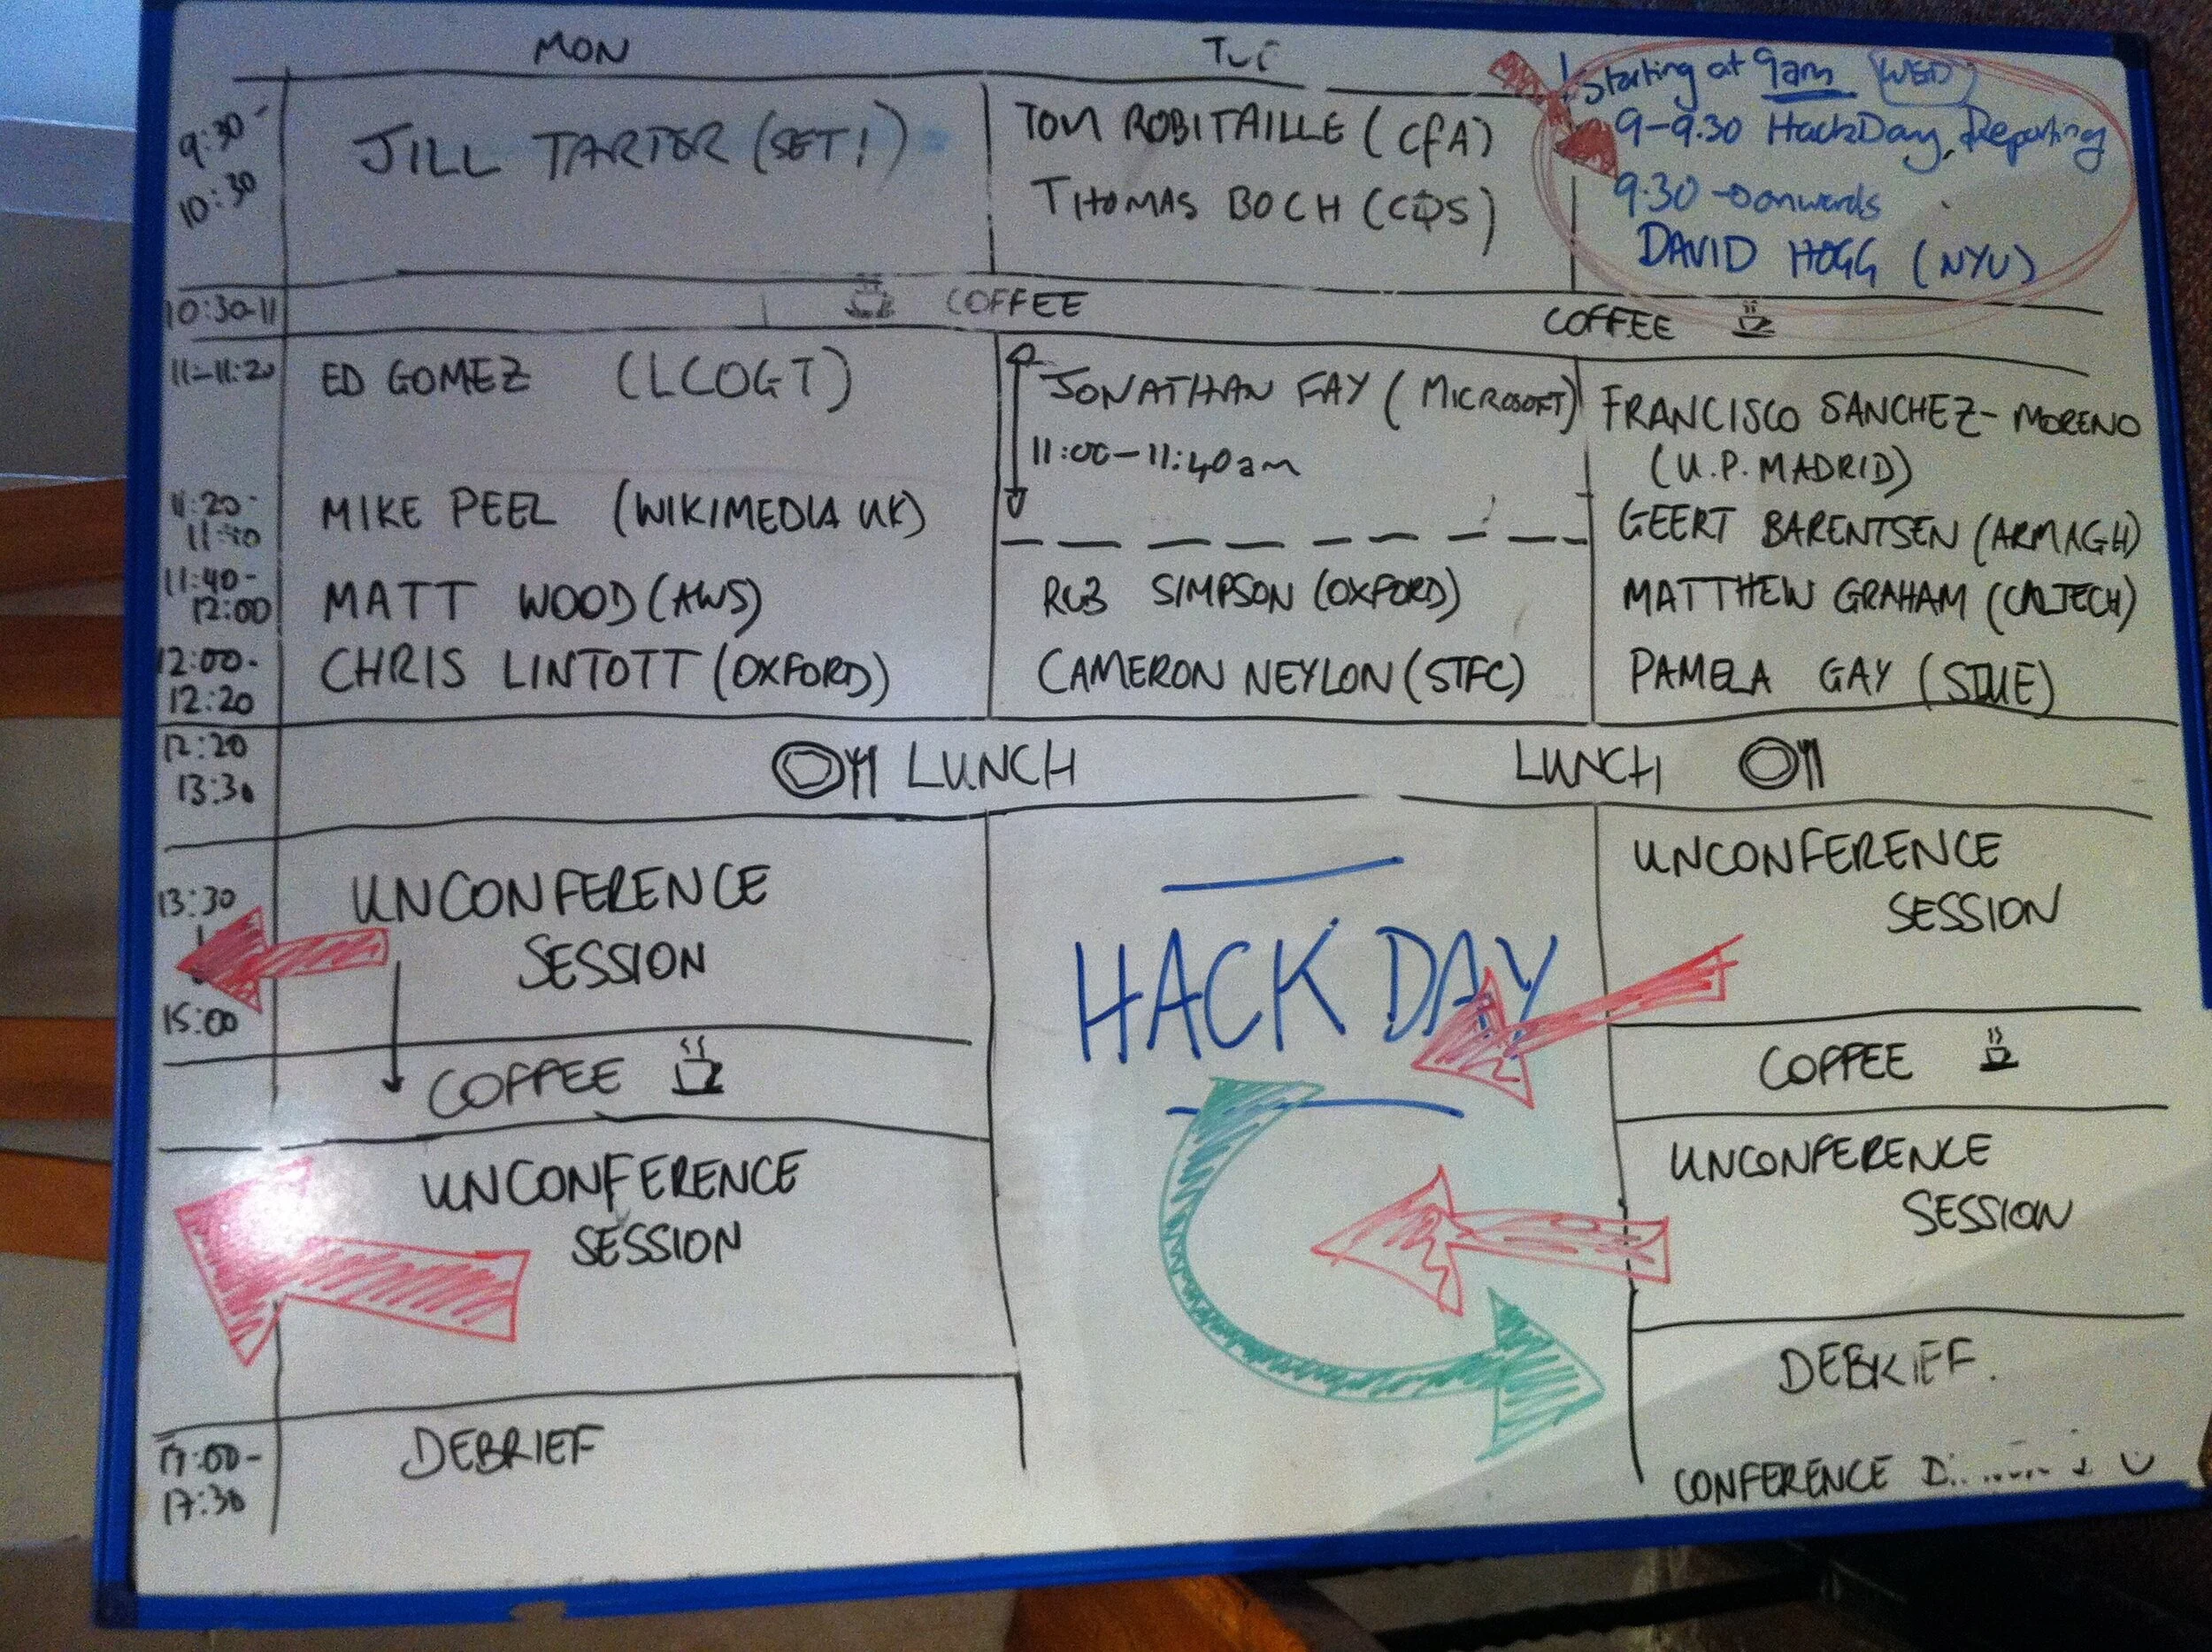 MON
TUE
Starting at 9am (WED)
9:30-
10:30
JILL TARTER (SETI)
TOM ROBITAILLE (CfA)
THOMAS BOCH (CDS)
9-9.30 HackDay Reporting
9.30 → onwards
DAVID HOGG (NYU)
10:30-11
COFFEE
COFFEE
11-11:20
ED GOMEZ (LCOGT)
JONATHAN FAY (MICROSOFT)
11:00-11:40am
FRANCISCO SANCHEZ-MORENO
(U.P. MADRID)
11:20-
11:40
MIKE PEEL (WIKIMEDIA UK)
GEERT BARENTSEN (ARMAGH)
11:40-
12:00
MATT WOOD (AWS)
ROB SIMPSON (OXFORD)
MATTHEW GRAHAM (CALTECH)
12:00-
12:20
CHRIS LINTOTT (OXFORD)
CAMERON NEYLON (STFC)
PAMELA GAY (SIUE)
12:20
13:30
LUNCH
LUNCH
13:30
15:00
UNCONFERENCE
SESSION
HACK DAY
UNCONFERENCE
SESSION
COFFEE
COFFEE
UNCONFERENCE
SESSION
UNCONFERENCE
SESSION
17:00-
17:30
DEBRIEF
DEBRIEF.
CONFERENCE